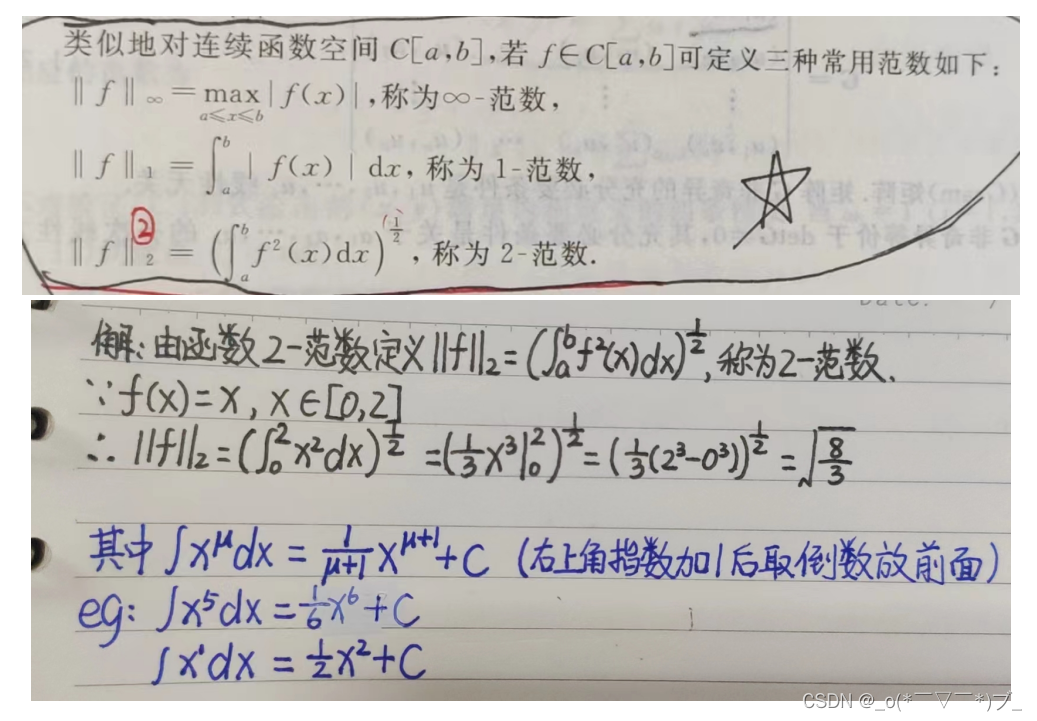 类似地对连续函数空间 C[a,b],若 f∈C[a,b]可定义三种常用范数如下:
‖f‖∞ = max a≤x≤b |f(x)|,称为∞-范数,
‖f‖₁ = ∫ₐᵇ |f(x)| dx, 称为 1-范数,
②
‖f‖₂ = (∫ₐᵇ f²(x)dx)^(1/2), 称为 2-范数.
解:由函数2-范数定义||f||₂=(∫ₐᵇf²(x)dx)^(1/2),称为2-范数.
∵f(x)=x, x∈[0,2]
∴ ||f||₂=(∫₀²x²dx)^(1/2) =(1/3 x³|₀²)^(1/2)=(1/3(2³-0³))^(1/2)=√(8/3)
其中∫x^μ dx = 1/(μ+1) x^(μ+1)+C (右上角指数加1后取倒数放前面)
eg: ∫x⁵dx=1/6 x⁶+C
∫x¹dx = 1/2 x²+C
CSDN @_o(*￣▽￣*)ブ_